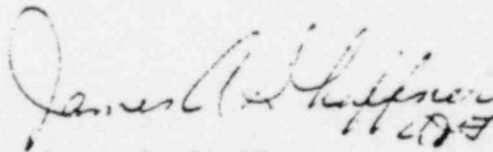 James A Shaffner